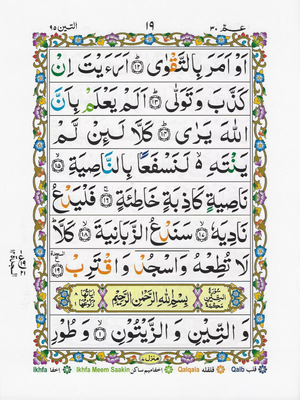 عـمّ ٣٠ ١٩ التين ٩٥
اَوْ اَمَرَ بِالتَّقْوٰى ﴿١٢﴾ اَرَءَيْتَ اِنْ
كَذَّبَ وَتَوَلّٰى ﴿١٣﴾ اَلَمْ يَعْلَمْ بِاَنَّ
اللهَ يَرٰى ﴿١٤﴾ كَلَّا لَىِٕنْ لَّمْ
يَنْتَهِ ۙ لَنَسْفَعًۢا بِالنَّاصِيَةِ ﴿١٥﴾
نَاصِيَةٍ كَاذِبَةٍ خَاطِئَةٍ ﴿١٦﴾ فَلْيَدْعُ
نَادِيَهٗ ﴿١٧﴾ سَنَدْعُ الزَّبَانِيَةَ ﴿١٨﴾ كَلَّا
لَا تُطِعْهُ وَاسْجُدْ وَاقْتَرِبْ ﴿١٩﴾ السجدة
بِسْمِ اللهِ الرَّحْمٰنِ الرَّحِيْمِ
وَ التِّيْنِ وَ الزَّيْتُوْنِ ﴿١﴾ وَ طُوْرِ
منزل ٧
Ikhfa اخفا Ikhfa Meem Saakin اخفا میم ساکن Qalqala قلقله Qalb قلب